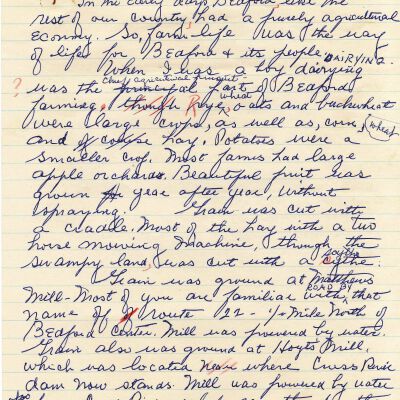 In the early days Bedford, like the
rest of our country, had a purely agricultural
economy. So, farm-life was the way
of life for Bedford & its people. DAIRYING.
When I was a boy dairying
chief agricultural pursuit
was the principal part of Bedford
wheat
farming, though Rye, oats and buckwheat
were large crops, as well as, corn, wheat
and of course hay. Potatoes were a
smaller crop. Most farms had large
apple orchards. Beautiful fruit was
grown year after year, without
spraying. Grain was cut with
a cradle. Most of the hay with a two
horse mowing machine, though the
scythe
swampy land, was cut with a
Grain was ground at Matthews
ROAD BY
Mill - Most of you are familiar with that
name of route 22 - ½ Mile North of
Bedford Center. Mill was powered by water.
Grain also was ground at Hoyts Mill,
which was located where Cross River
dam now stands. Mill was powered by water